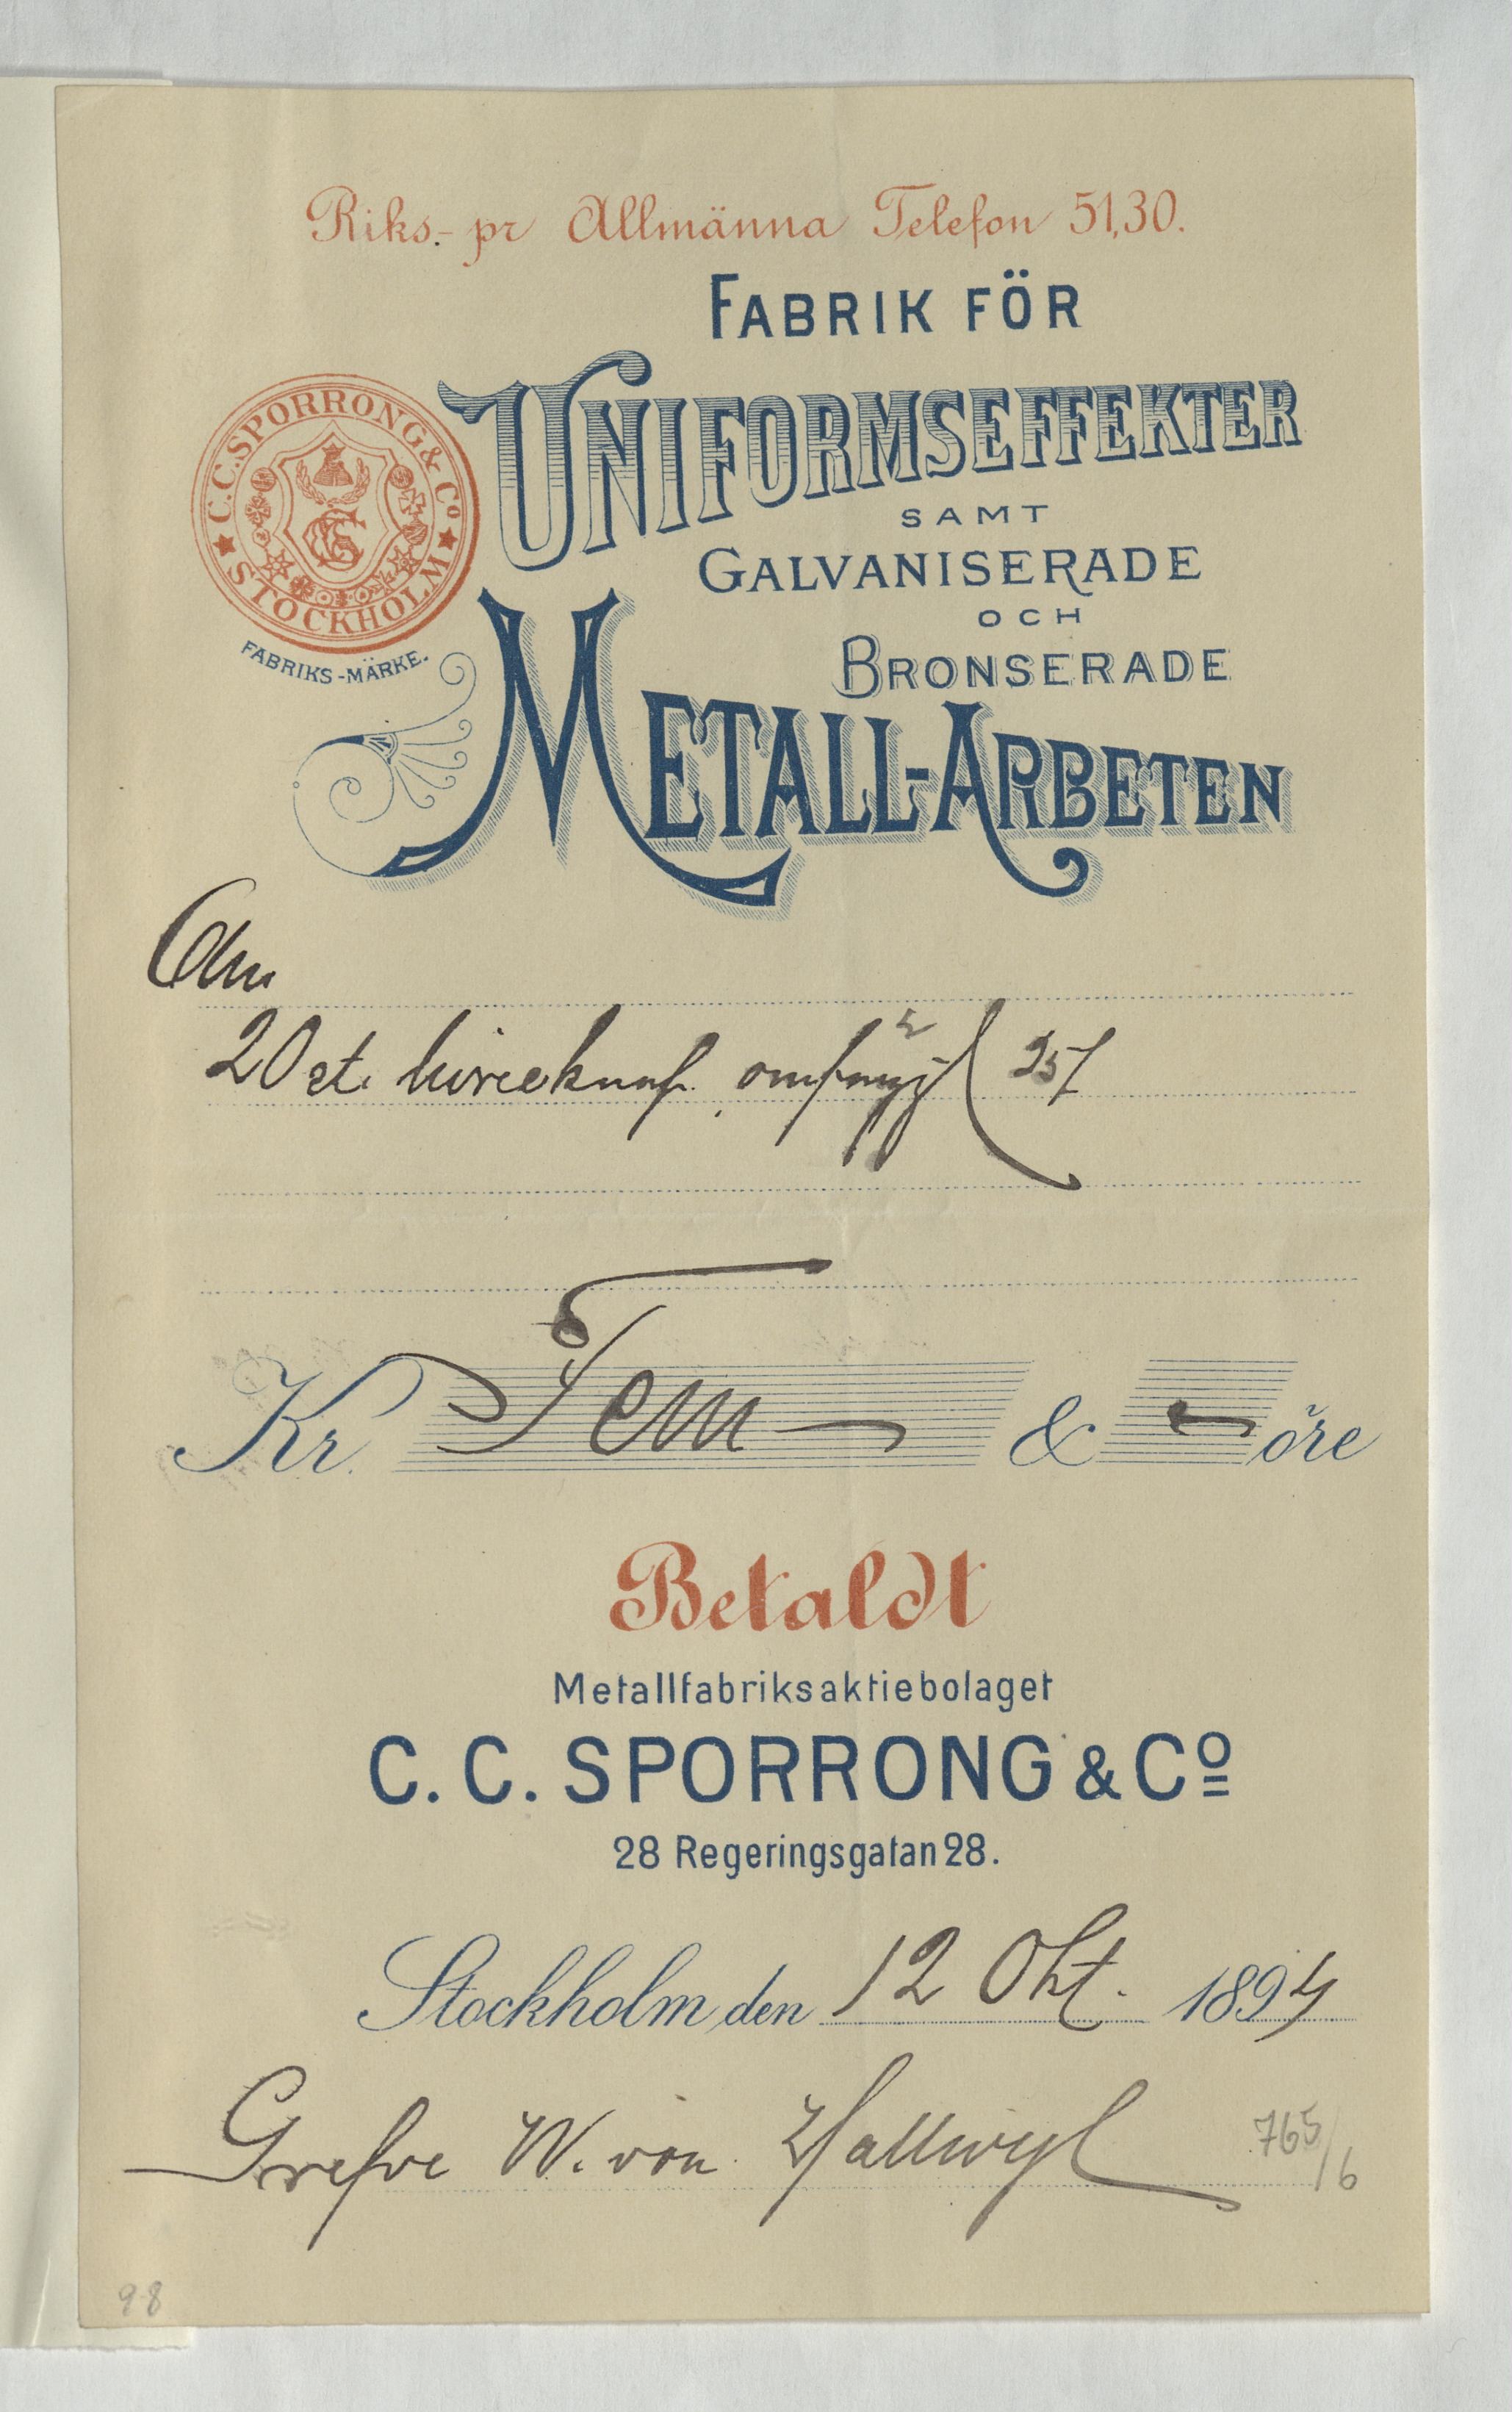 Riks.- pr Allmänna Telefon 51,30.
FABRIK FÖR
UNIFORMSEFFEKTER
SAMT
GALVANISERADE
OCH
BRONSERADE
METALL-ARBETEN
C.C. SPORRONG & Co
STOCKHOLM
FABRIKS-MÄRKE.
20 st. livréeknap. 25/
Kr. Fem & — öre
Betaldt
Metallfabriksaktiebolaget
C. C. SPORRONG & Co
28 Regeringsgatan 28.
Stockholm, den 12 Okt. 1894
Grefve W. von Hallwyl
765/6
98